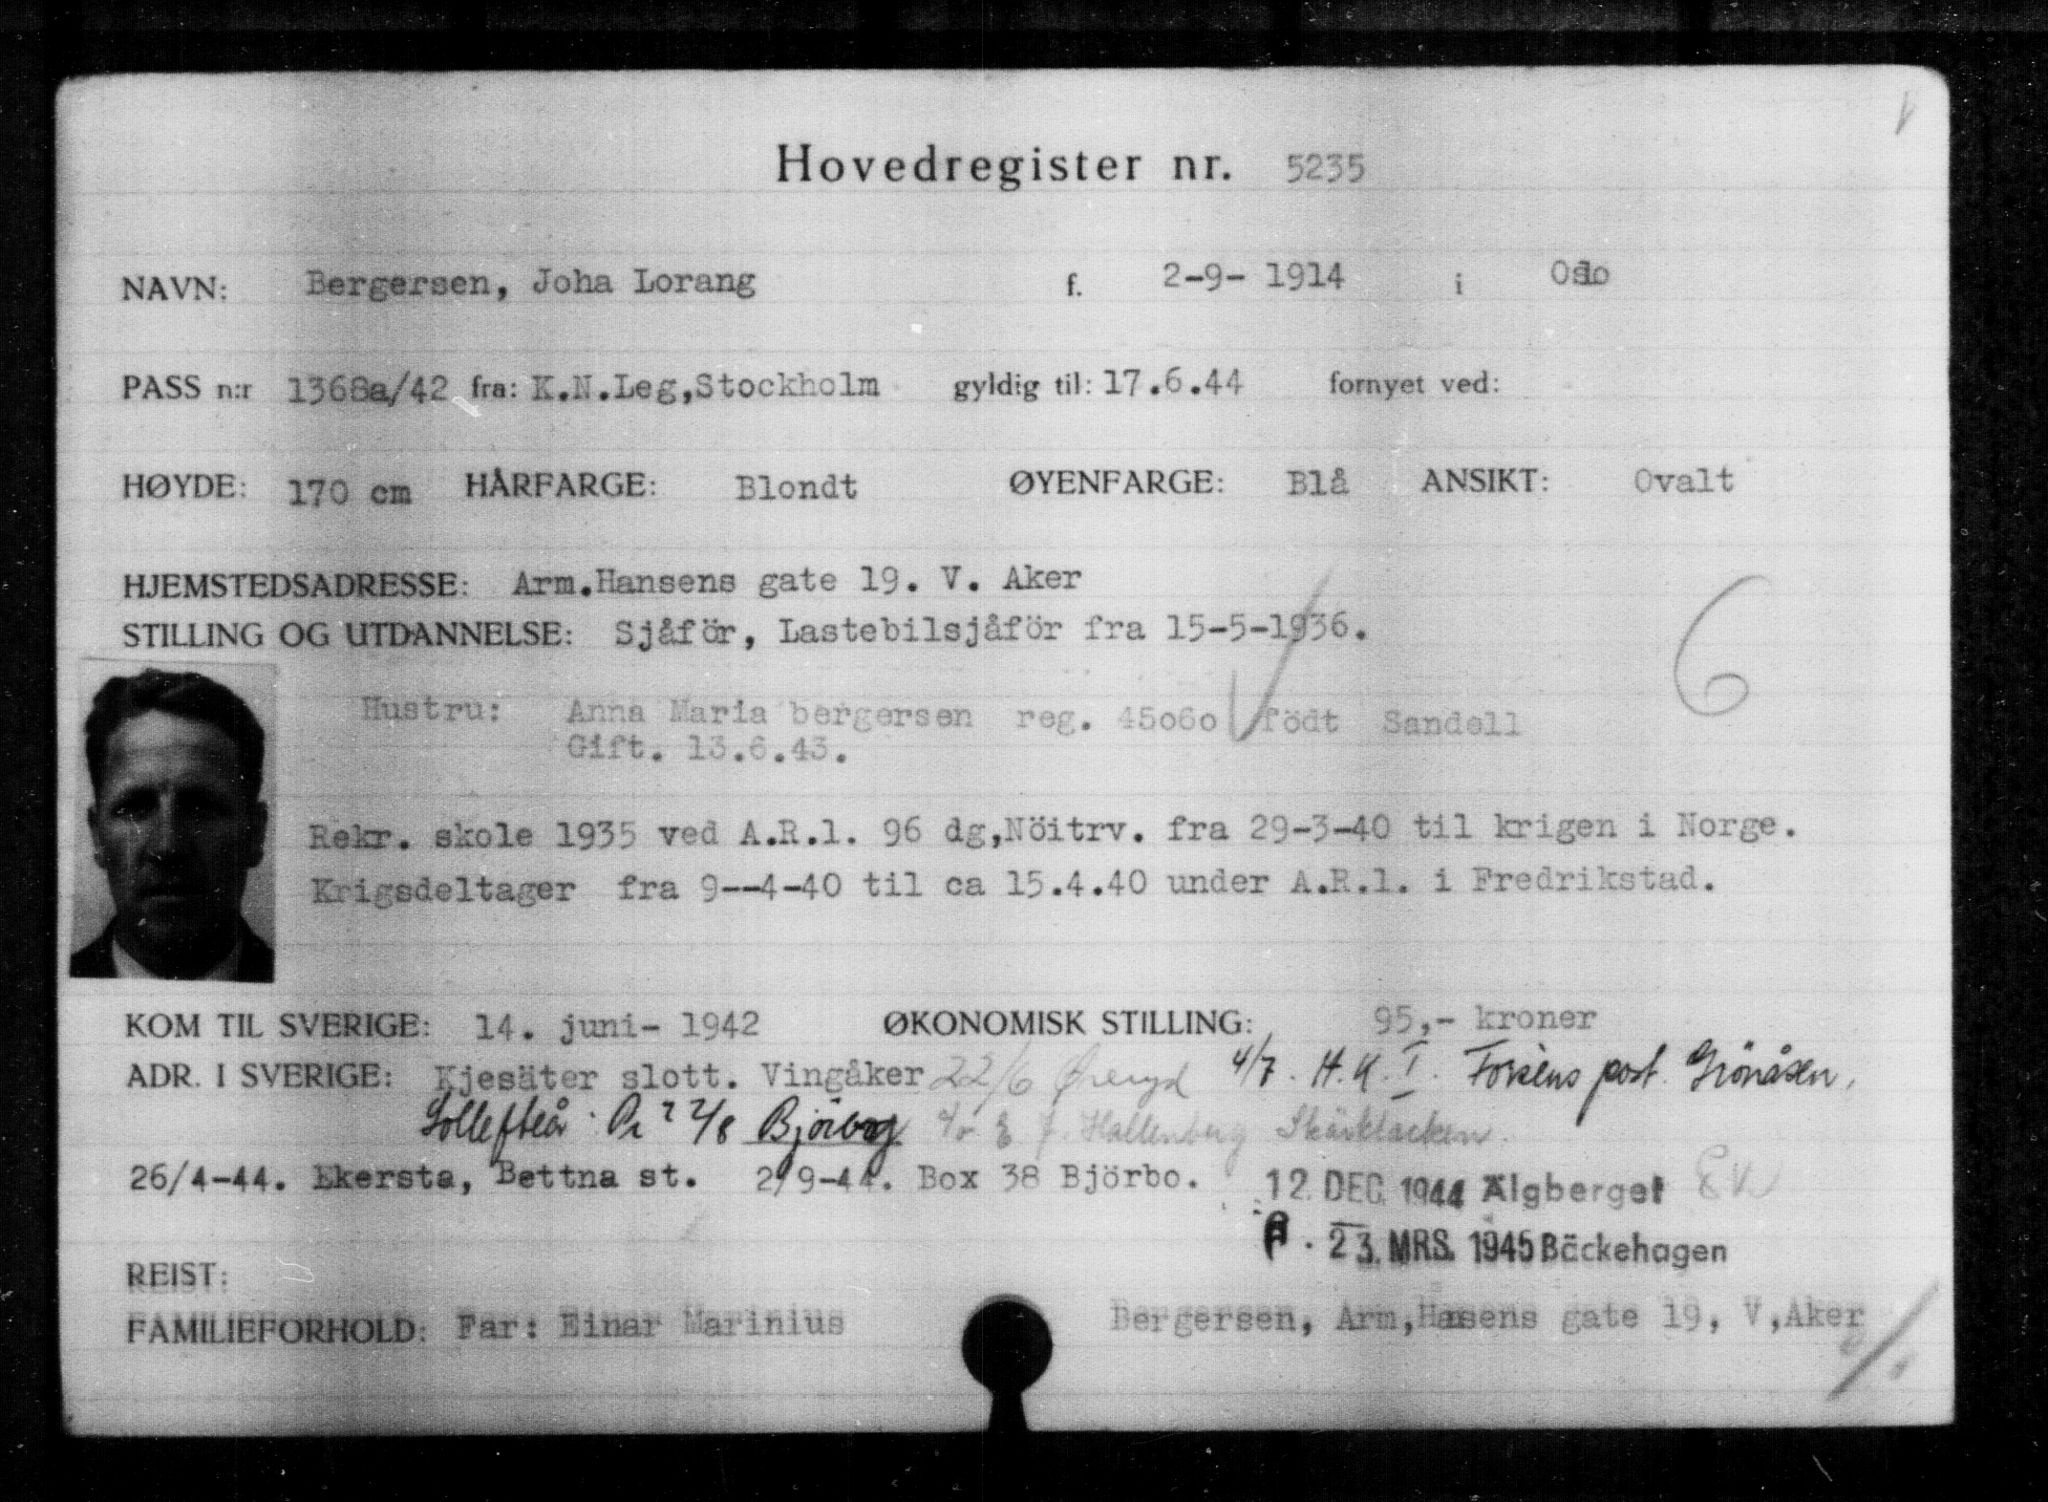 Hovedregister nr. 5235
NAVN: Bergersen, Joha Lorang f. 2-9- 1914 i Oslo
PASS n:r 1368a/42 fra: K.N.Leg,Stockholm gyldig til: 17.6.44 fornyet ved:
HØYDE: 170 cm HÅRFARGE: Blondt ØYENFARGE: Blå ANSIKT: Ovalt
HJEMSTEDSADRESSE: Arm.Hansens gate 19. V. Aker
STILLING OG UTDANNELSE: Sjåför, Lastebilsjåför fra 15-5-1936.
6
Hustru: Anna Maria bergersen reg. 45o6o födt Sandell
Gift. 13.6.43.
Rekr. skole 1935 ved A.R.1. 96 dg,Nöitrv. fra 29-3-40 til krigen i Norge.
Krigsdeltager fra 9--4-40 til ca 15.4.40 under A.R.1. i Fredrikstad.
KOM TIL SVERIGE: 14. juni- 1942 ØKONOMISK STILLING: 95,- kroner
ADR. I SVERIGE: Kjesäter slott. Vingåker 22/6 Öreryd 4/7. H.K. I. Forsens post. Grönåsen,
Sollefteå 2/8 Björbog Hallenberg
26/4-44. Ekersta, Bettna st. 2/9-44. Box 38 Björbo. 12. DEC. 1944 Älgberget
23. MRS. 1945 Bäckehagen
REIST:
FAMILIEFORHOLD: Far: Einar Marinius Bergersen, Arm,Hansens gate 19, V,Aker